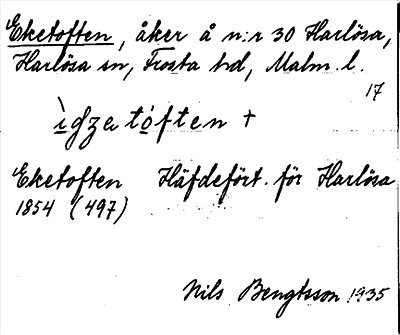 Eketoften, åker å n:r 30 Harlösa,
Harlösa sn, Frosta hd, Malm. l.
17
ìgzatóften +
Eketoften Häfdeført. för Harlösa
1854 (497)
Nils Bengtsson 1935